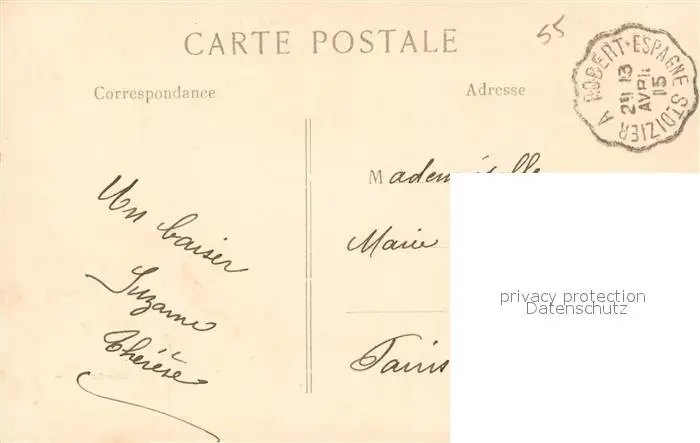 55
CARTE POSTALE
ROBERT-ESPAGNE A ST DIZIER
2E 13
AVRIL
15
Correspondance
Adresse
Mademoiselle
Marie
Un baiser
Suzanne
Thérèse
privacy protection
Datenschutz